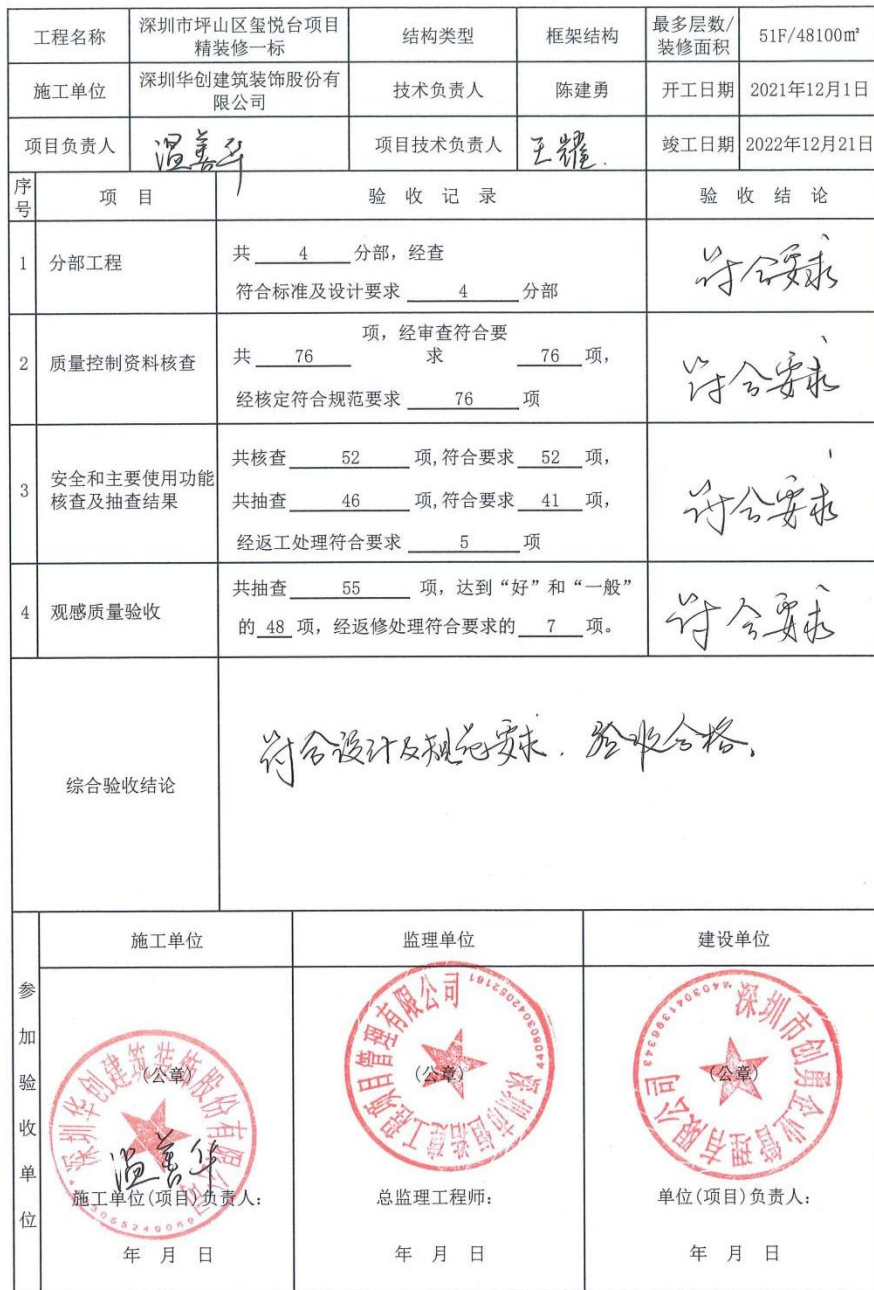 工程名称 深圳市坪山区玺悦台项目精装修一标 结构类型 框架结构 最多层数/装修面积 51F/48100㎡
施工单位 深圳华创建筑装饰股份有限公司 技术负责人 陈建勇 开工日期 2021年12月1日
项目负责人 温善华 项目技术负责人 王耀. 竣工日期 2022年12月21日
序号 项 目 验 收 记 录 验 收 结 论
1 分部工程 共 4 分部，经查
符合标准及设计要求 4 分部
符合要求
2 质量控制资料核查 共 76 项，经审查符合要求 76 项，
经核定符合规范要求 76 项
符合要求
3 安全和主要使用功能核查及抽查结果 共核查 52 项,符合要求 52 项，
共抽查 46 项,符合要求 41 项，
经返工处理符合要求 5 项
符合要求
4 观感质量验收 共抽查 55 项，达到“好”和“一般”
的 48 项，经返修处理符合要求的 7 项。
符合要求
综合验收结论 符合设计及规范要求．验收合格．
参加验收单位
施工单位 监理单位 建设单位
深圳华创建筑装饰股份有限公司
(公章)
温善华
施工单位(项目)负责人:
年 月 日
工程项目管理有限公司
440803042052181
(公章)
总监理工程师:
年 月 日
深圳市创勇企业管理有限公司
(公章)
单位(项目)负责人:
年 月 日